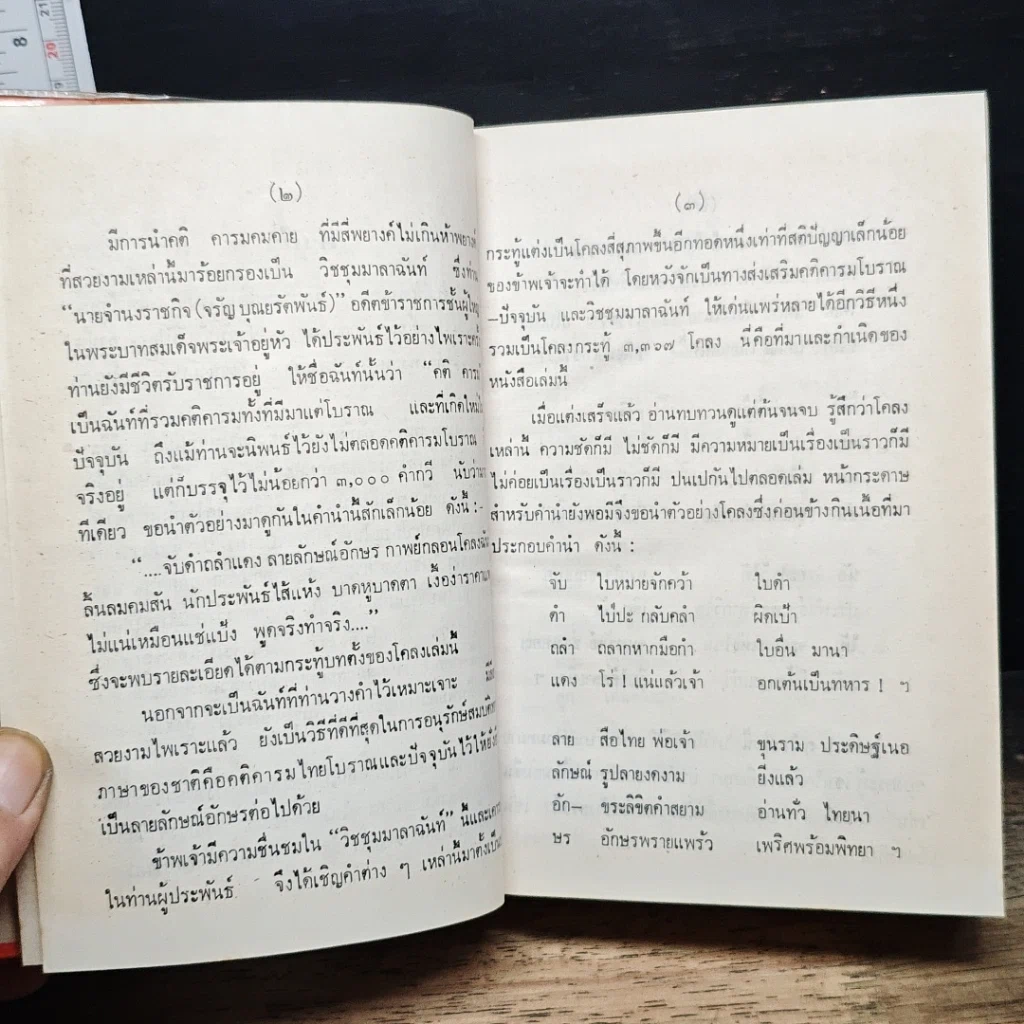 8
20
21
19
(๒)
มีการนำคติ คารมคมคาย ที่มีสี่พยางค์ไม่เกินห้าพยางค์
ที่สวยงามเหล่านี้มาร้อยกรองเป็น วิชชุมมาลาฉันท์ ซึ่งท่าน
“นายจำนงราชกิจ (จรัญ บุณยรัตพันธ์)” อดีตข้าราชการชั้นผู้ใหญ่
ในพระบาทสมเด็จพระเจ้าอยู่หัว ได้ประพันธ์ไว้อย่างไพเราะครั้ง
ท่านยังมีชีวิตรับราชการอยู่ ให้ชื่อฉันท์นั้นว่า “คติ คารม”
เป็นฉันท์ที่รวมคติคารมทั้งที่มีมาแต่โบราณ และที่เกิดใหม่ใน
ปัจจุบัน ถึงแม้ท่านจะนิพนธ์ไว้ยังไม่ตลอดคติคารมโบราณ
จริงอยู่ แต่ก็บรรจุไว้ไม่น้อยกว่า ๓,๐๐๐ คำกวี นับว่า
ทีเดียว ขอนำตัวอย่างมาดูกันในคำนำนี้สักเล็กน้อย ดังนี้ :-
“....จับดำถลำแดง ลายลักษณ์อักษร กาพย์กลอนโคลงฉันท์
ลิ้นลมคมสัน นักประพันธ์ไส้แห้ง บาดหูบาดตา เงื้อง่าราคาแพง
ไม่แน่เหมือนแช่แป้ง พูดจริงทำจริง....”
ซึ่งจะพบรายละเอียดได้ตามกระทู้บทตั้งของโคลงเล่มนี้
นอกจากจะเป็นฉันท์ที่ท่านวางคำไว้เหมาะเจาะ
สวยงามไพเราะแล้ว ยังเป็นวิธีที่ดีที่สุดในการอนุรักษ์สมบัติ
ภาษาของชาติคือคติคารมไทยโบราณและปัจจุบันไว้ให้ยั่งยืน
เป็นลายลักษณ์อักษรต่อไปด้วย
ข้าพเจ้ามีความชื่นชมใน “วิชชุมมาลาฉันท์” นี้และเคารพ
ในท่านผู้ประพันธ์ จึงได้เชิญคำต่าง ๆ เหล่านี้มาตั้งเป็น
(๓)
กระทู้แต่งเป็นโคลงสี่สุภาพขึ้นอีกทอดหนึ่งเท่าที่สติปัญญาเล็กน้อย
ของข้าพเจ้าจะทำได้ โดยหวังจักเป็นทางส่งเสริมคติคารมโบราณ
–ปัจจุบัน และวิชชุมมาลาฉันท์ ให้เด่นแพร่หลายได้อีกวิธีหนึ่ง
รวมเป็นโคลงกระทู้ ๓,๓๖๗ โคลง นี่คือที่มาและกำเนิดของ
หนังสือเล่มนี้
เมื่อแต่งเสร็จแล้ว อ่านทบทวนดูแต่ต้นจนจบ รู้สึกว่าโคลง
เหล่านี้ ความชัดก็มี ไม่ชัดก็มี มีความหมายเป็นเรื่องเป็นราวก็มี
ไม่ค่อยเป็นเรื่องเป็นราวก็มี ปนเปกันไปตลอดเล่ม หน้ากระดาษ
สำหรับคำนำยังพอมีจึงขอนำตัวอย่างโคลงซึ่งค่อนข้างกินเนื้อที่มา
ประกอบคำนำ ดังนี้ :
จับ ใบหมายจักคว้า ใบดำ
ดำ ไป๋ปะ กลับคลำ ผิดเป้า
ถลำ ถลากหากมือกำ ใบอื่น มานา
แดง โร่ ! แน่แล้วเจ้า อกเต้นเป็นทหาร ! ฯ
ลาย สือไทย พ่อเจ้า ขุนราม ประดิษฐ์เนอ
ลักษณ์ รูปลายงดงาม ยิ่งแล้ว
อัก– ขระลิขิตคำสยาม อ่านทั่ว ไทยนา
ษร อักษรพรายแพร้ว เพริศพร้อมพิทยา ฯ